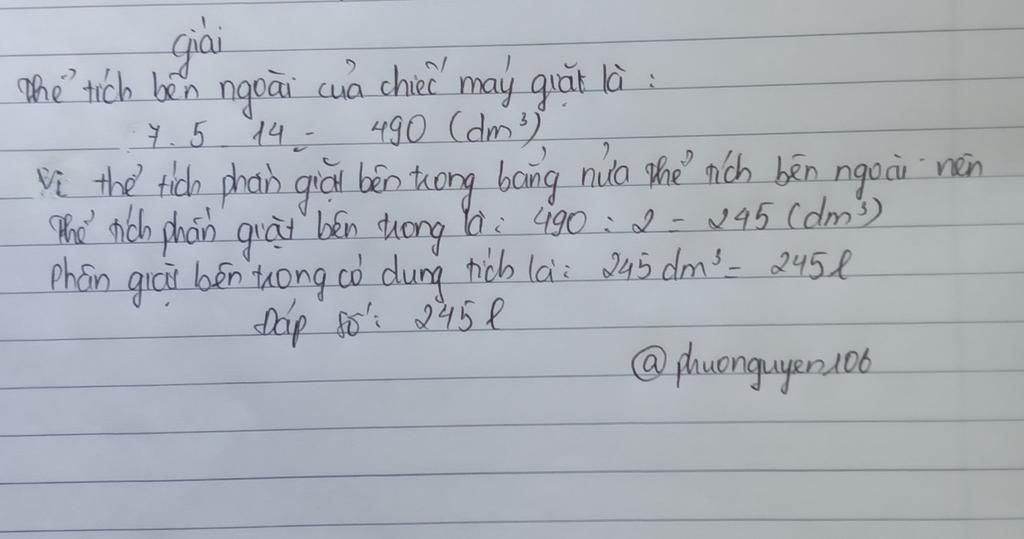 giải
Thể tích bên ngoài của chiếc máy giặt là:
7. 5 14 = 490 (dm³)
Vì thể tích phần giặt bên trong bằng nửa thể tích bên ngoài nên
Thể tích phần giặt bên trong là: 490 : 2 = 245 (dm³)
Phần giặt bên trong có dung tích là: 245 dm³ = 245 l
Đáp số: 245 l
@phuonguyen106